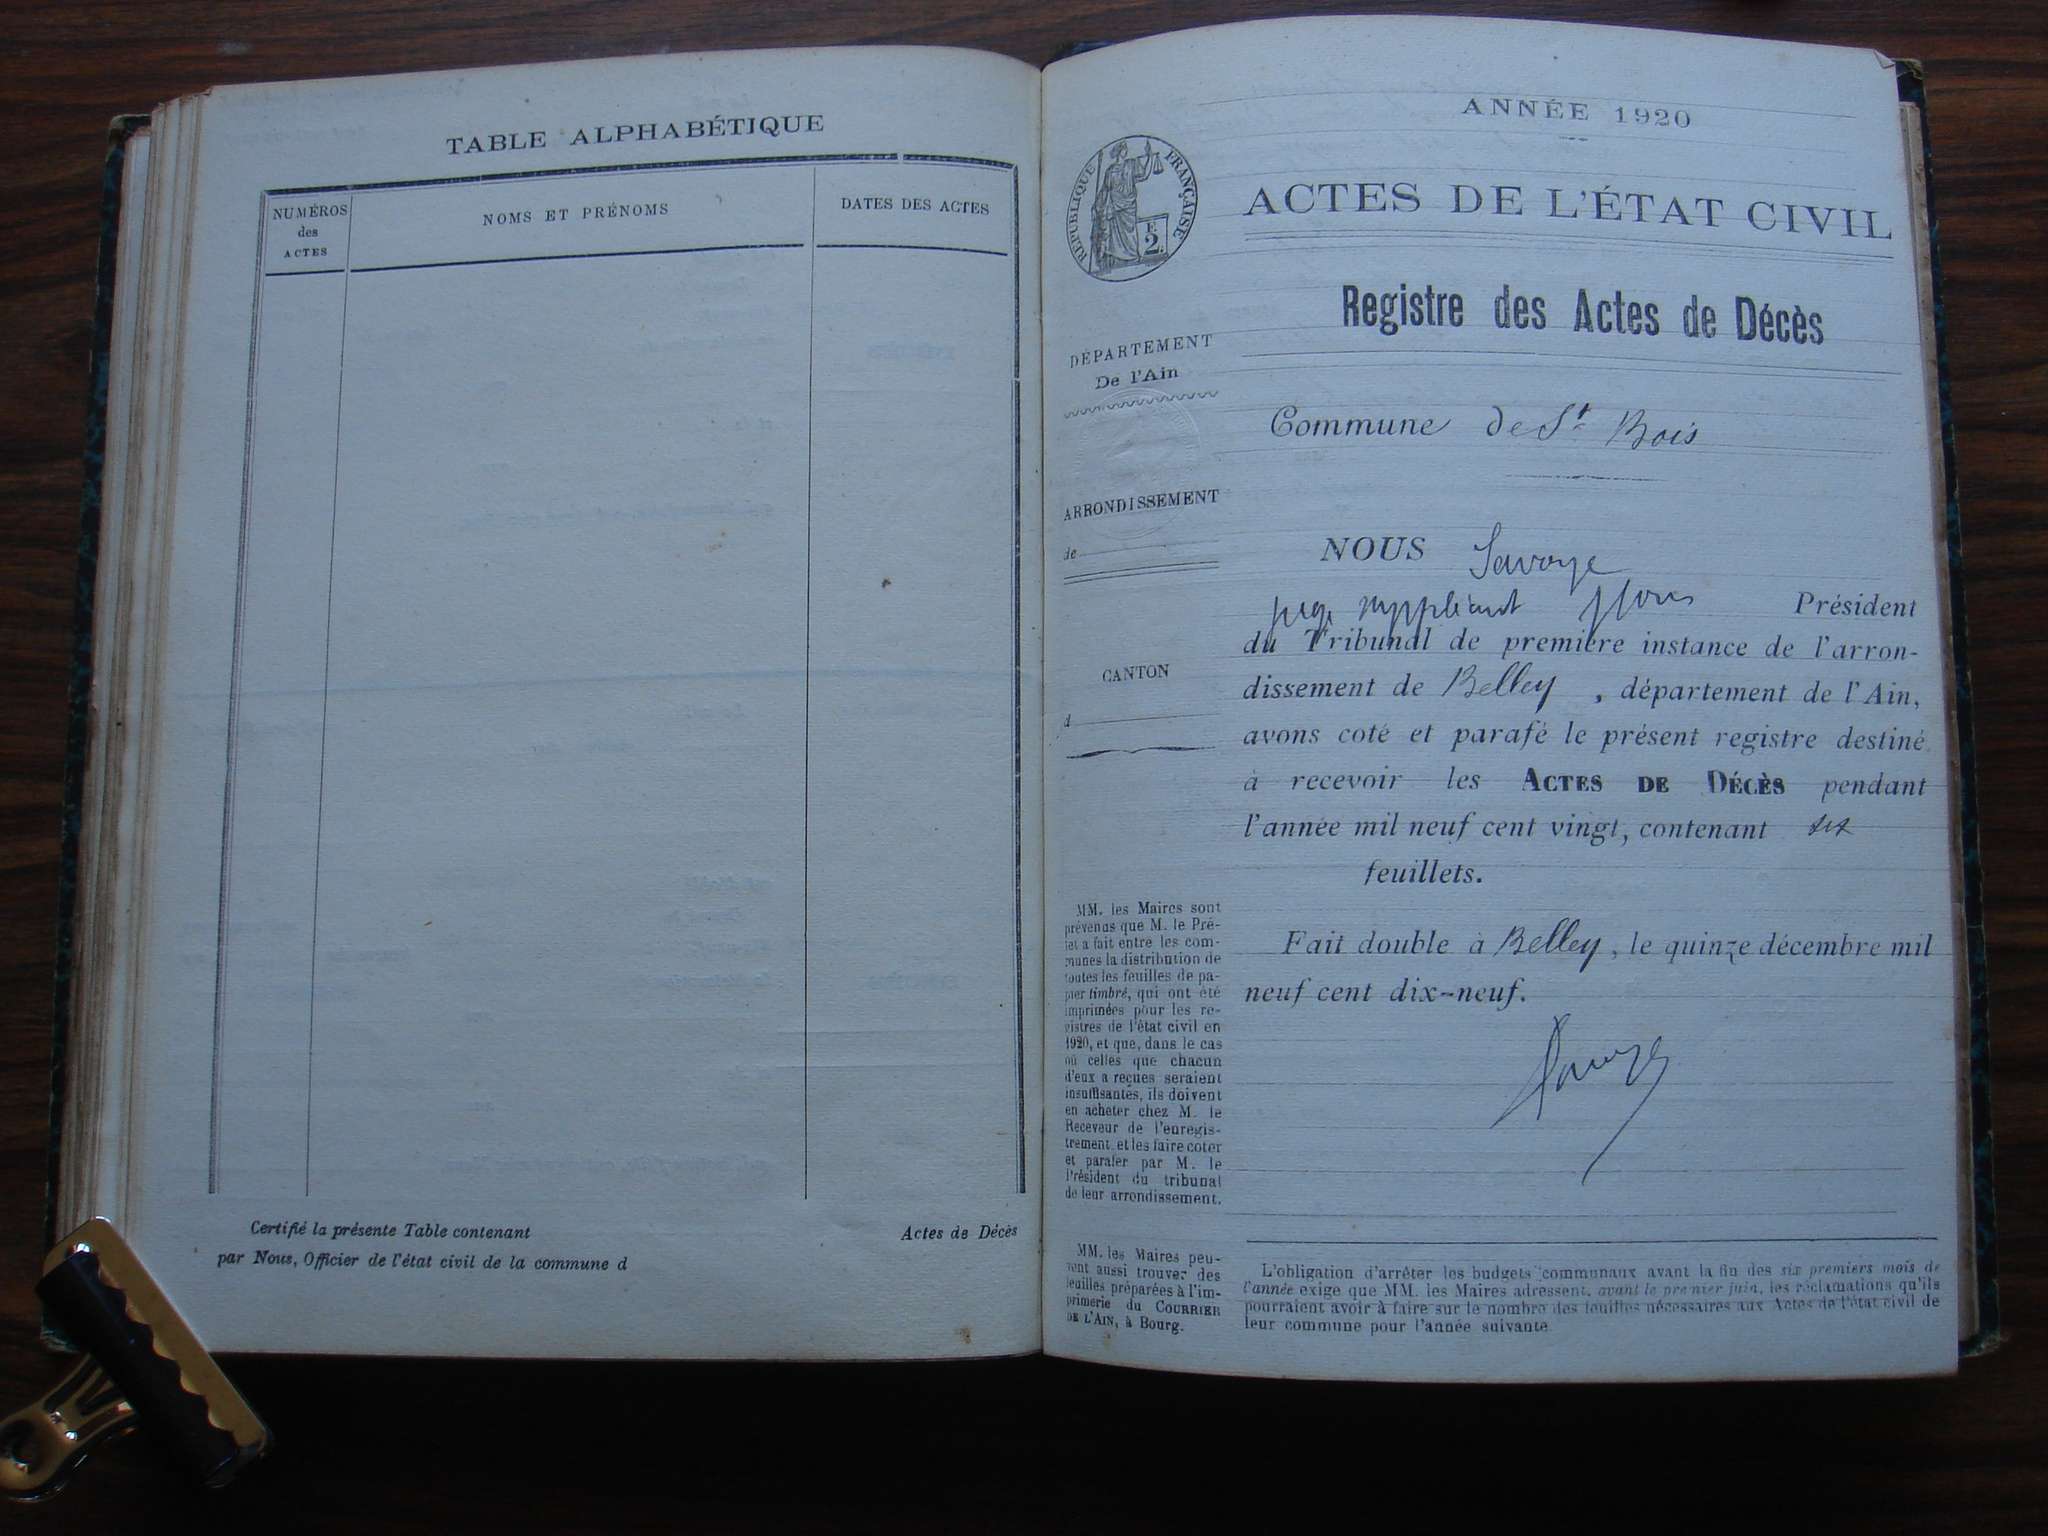 TABLE ALPHABÉTIQUE
NUMÉROS
des
ACTES
NOMS ET PRÉNOMS
DATES DES ACTES
Certifié la présente Table contenant Actes de Décès
par Nous, Officier de l'état civil de la commune d
ANNÉE 1920
RÉPUBLIQUE FRANÇAISE
2 F.
ACTES DE L'ÉTAT CIVIL
Registre des Actes de Décès
DÉPARTEMENT
De l'Ain
Commune de St Bois
ARRONDISSEMENT
de
CANTON
d
NOUS Savoye
juge suppléant Président
du Tribunal de première instance de l'arron-
dissement de Belley, département de l'Ain,
avons coté et parafé le présent registre destiné
à recevoir les ACTES DE DÉCÈS pendant
l'année mil neuf cent vingt, contenant six
feuillets.
Fait double à Belley, le quinze décembre mil
neuf cent dix-neuf.
Savoye
MM. les Maires sont
prévenus que M. le Pré-
fet a fait entre les com-
munes la distribution de
toutes les feuilles de pa-
pier timbré, qui ont été
imprimées pour les re-
gistres de l'état civil en
1920, et que, dans le cas
où celles que chacun
d'eux a reçues seraient
insuffisantes, ils doivent
en acheter chez M. le
Receveur de l'enregis-
trement et les faire coter
et parafer par M. le
Président du tribunal
de leur arrondissement.
MM. les Maires peu-
vent aussi trouver des
feuilles préparées à l'im-
primerie du COURRIER
DE L'AIN, à Bourg.
L'obligation d'arrêter les budgets communaux avant la fin des six premiers mois de
l'année exige que MM. les Maires adressent, avant le premier juin, les réclamations qu'ils
pourraient avoir à faire sur le nombre des feuilles nécessaires aux Actes de l'état civil de
leur commune pour l'année suivante.